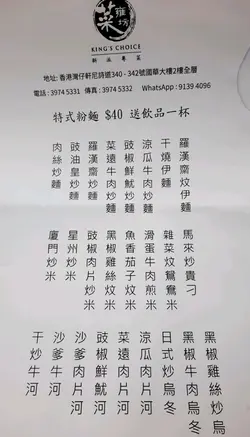 菜
KING'S CHOICE
新派粵菜
地址: 香港灣仔軒尼詩道340 - 342號國華大樓2樓全層
電話 : 3974 5331 傳真 : 3974 5332 WhatsApp : 9139 4096
特式粉麵 $40 送飲品一杯
羅漢齋炆伊麵
干燒伊麵
涼瓜牛肉炒麵
豉椒鮮魷炒麵
菜遠牛肉炒麵
羅漢齋炒麵
豉油皇炒麵
肉絲炒麵
馬來炒貴刁
雜菜炆鴛鴦米
滑蛋牛肉煎米
魚香茄子炆米
黑椒雞絲炒米
豉椒肉片炒米
星州炒米
廈門炒米
黑椒雞絲炒烏冬
黑椒牛肉炒烏冬
日式炒烏冬
涼瓜肉片河
菜遠肉片河
豉椒鮮魷河
沙爹肉片河
沙爹牛河
干炒牛河